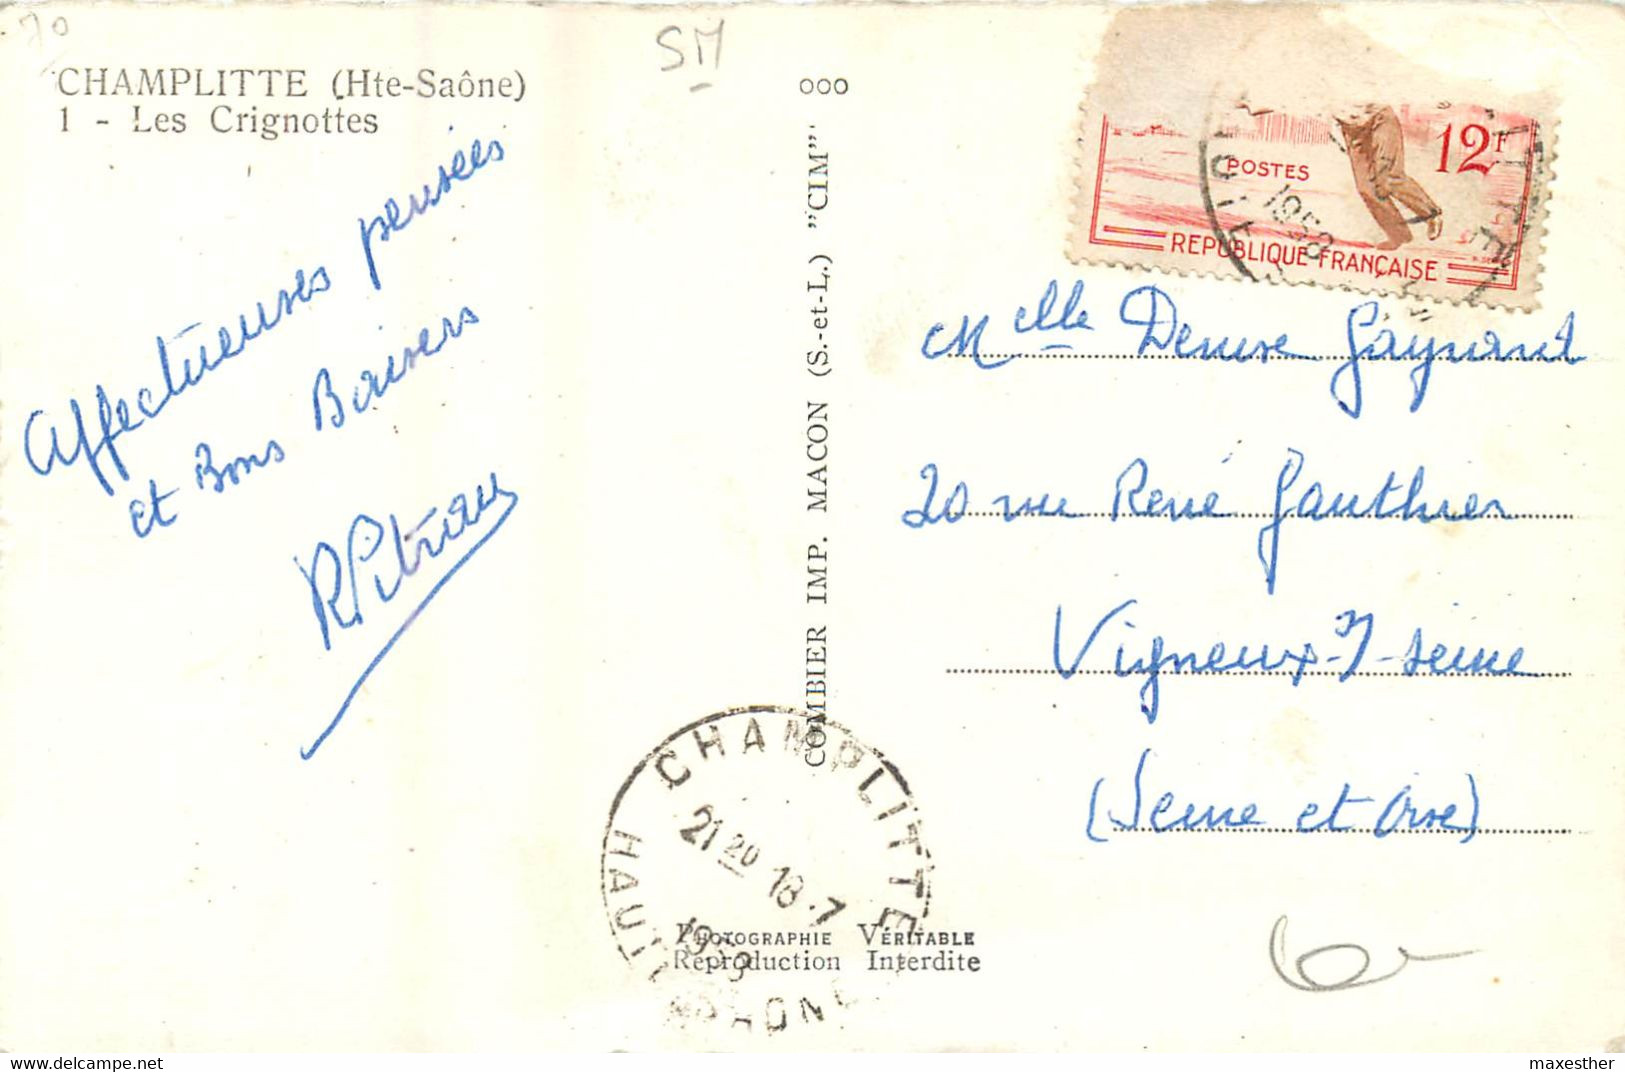 70
SM
CHAMPLITTE (Hte-Saône)
1 - Les Crignottes
Affectueuses pensées
et Bons Baisers
ooo
COMBIER IMP. MACON (S.-et-L.) "CIM"
12F
POSTES
REPUBLIQUE FRANÇAISE
1958
Melle Denise Gaynard
20 rue René Gauthier
Vigneux-s/-seine
(Seine et Oise)
CHAMPLITTE
21 20 18-7
1958
HAUTE SAONE
PHOTOGRAPHIE VÉRITABLE
Reproduction Interdite
Delcampe.net
maxesther